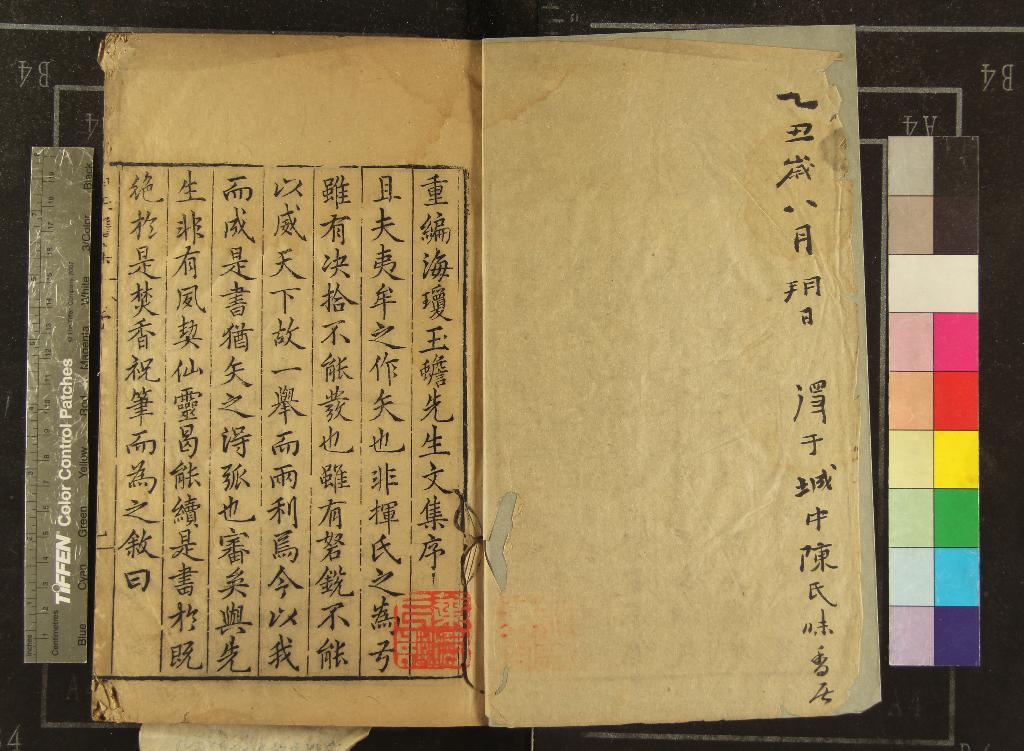 乙丑歲八月朔日 得于城中陳氏味香居
重編海瓊玉蟾先生文集序
且夫夷牟之作矢也非揮氏之為弓
雖有决拾不能發也雖有弩銳不能
以威天下故一舉而兩利焉今以我
而成是書猶矢之得弧也審矣與先
生非有夙契仙靈曷能續是書於既
絶於是焚香祝筆而為之敘曰
TIFFEN Color Control Patches
Blue
Cyan
Green
Yellow
Red
Magenta
White
3/Color
Black
Inches
Centimetres
B4
B4
A4
A4